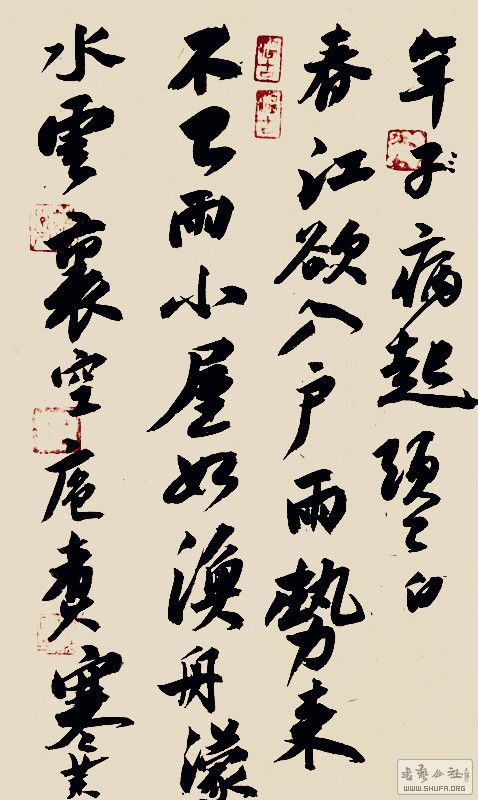 年子病起頭已白
春江欲入戶雨勢來
不已雨小屋如漁舟濛
水雲裏空庖煮寒菜
書藝公社
WWW.SHUFA.ORG